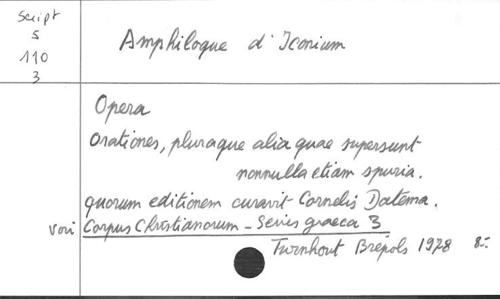 Script
5
110
3
Amphiloque d'Iconium
Opera
Orationes, pluraque alia quae supersunt
nonnulla etiam spuria.
quorum editionem curavit Cornelis Datema.
voir Corpus Christianorum - Series graeca 3
Turnhout Brepols 1978 8:-